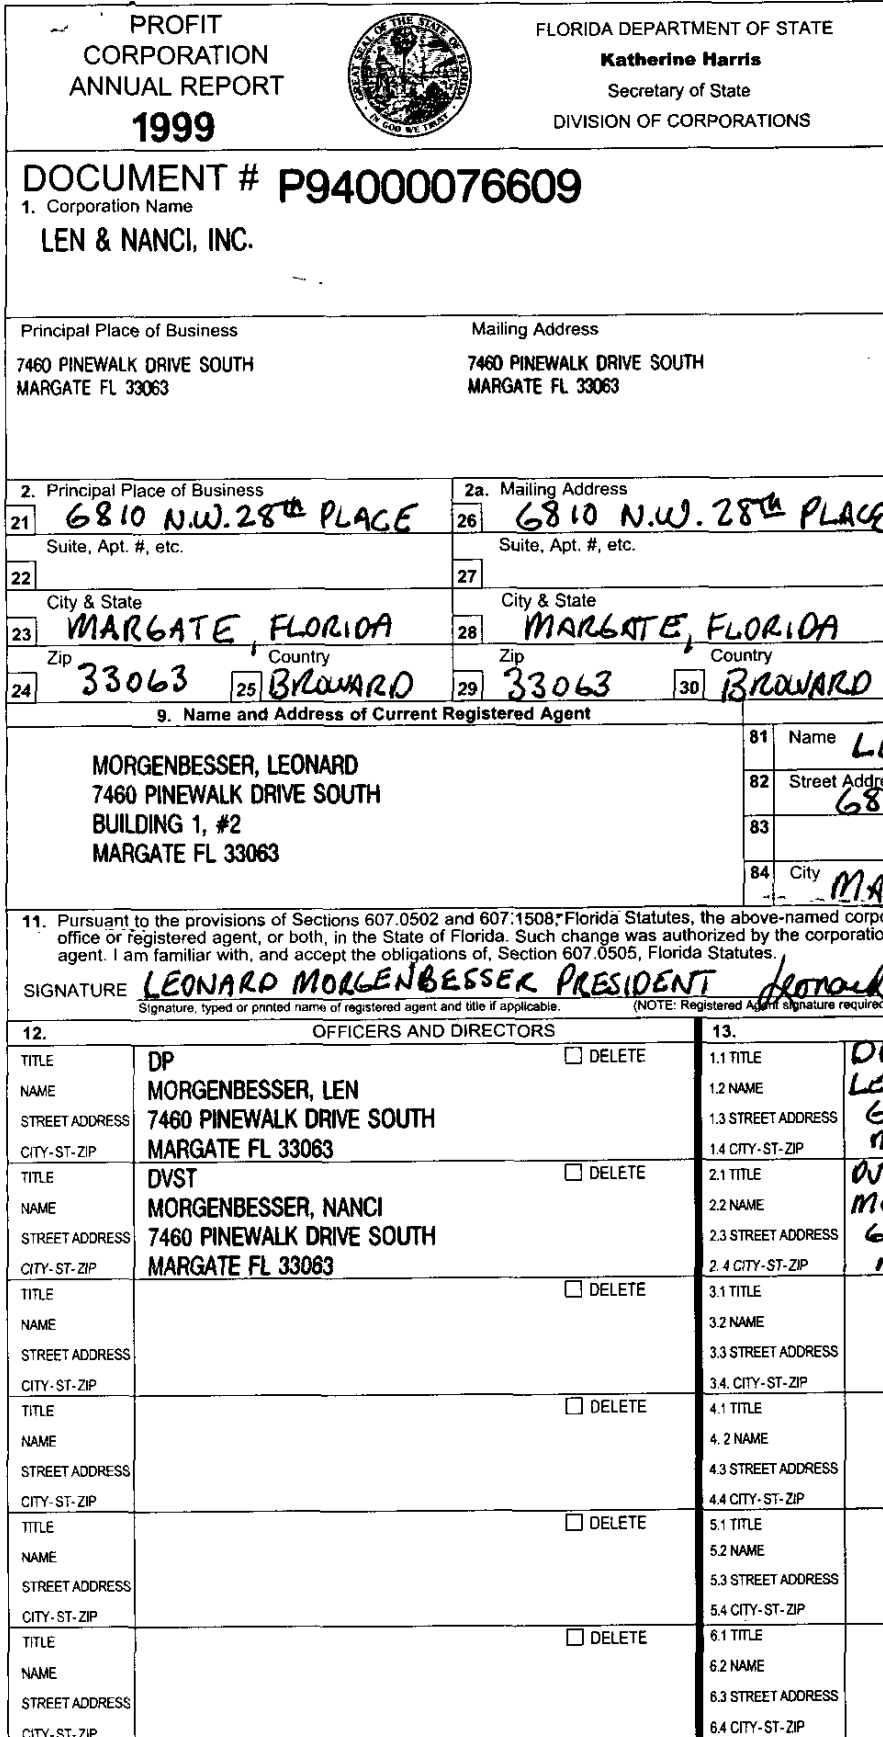 PROFIT
CORPORATION
ANNUAL REPORT
1999
GREAT SEAL OF THE STATE OF FLORIDA
IN GOD WE TRUST
FLORIDA DEPARTMENT OF STATE
Katherine Harris
Secretary of State
DIVISION OF CORPORATIONS
DOCUMENT # P94000076609
1. Corporation Name
LEN & NANCI, INC.
Principal Place of Business
7460 PINEWALK DRIVE SOUTH
MARGATE FL 33063
Mailing Address
7460 PINEWALK DRIVE SOUTH
MARGATE FL 33063
2. Principal Place of Business
21 6810 N.W. 28th PLACE
Suite, Apt. #, etc.
22
City & State
23 MARGATE, FLORIDA
Zip Country
24 33063 25 BROWARD
2a. Mailing Address
26 6810 N.W. 28th PLACE
Suite, Apt. #, etc.
27
City & State
28 MARGATE, FLORIDA
Zip Country
29 33063 30 BROWARD
9. Name and Address of Current Registered Agent
MORGENBESSER, LEONARD
7460 PINEWALK DRIVE SOUTH
BUILDING 1, #2
MARGATE FL 33063
81 Name LE
82 Street Addre
68
83
84 City MA
11. Pursuant to the provisions of Sections 607.0502 and 607.1508, Florida Statutes, the above-named corpo
office or registered agent, or both, in the State of Florida. Such change was authorized by the corporatio
agent. I am familiar with, and accept the obligations of, Section 607.0505, Florida Statutes.
SIGNATURE LEONARD MORGENBESSER PRESIDENT Leonard
Signature, typed or printed name of registered agent and title if applicable. (NOTE: Registered Agent signature required
12. OFFICERS AND DIRECTORS
TITLE DP DELETE
NAME MORGENBESSER, LEN
STREET ADDRESS 7460 PINEWALK DRIVE SOUTH
CITY-ST-ZIP MARGATE FL 33063
TITLE DVST DELETE
NAME MORGENBESSER, NANCI
STREET ADDRESS 7460 PINEWALK DRIVE SOUTH
CITY-ST-ZIP MARGATE FL 33063
TITLE DELETE
NAME
STREET ADDRESS
CITY-ST-ZIP
TITLE DELETE
NAME
STREET ADDRESS
CITY-ST-ZIP
TITLE DELETE
NAME
STREET ADDRESS
CITY-ST-ZIP
TITLE DELETE
NAME
STREET ADDRESS
CITY-ST-ZIP
13.
1.1 TITLE
1.2 NAME LE
1.3 STREET ADDRESS 6
1.4 CITY-ST-ZIP M
2.1 TITLE DV
2.2 NAME MO
2.3 STREET ADDRESS 6
2.4 CITY-ST-ZIP
3.1 TITLE
3.2 NAME
3.3 STREET ADDRESS
3.4. CITY-ST-ZIP
4.1 TITLE
4.2 NAME
4.3 STREET ADDRESS
4.4 CITY-ST-ZIP
5.1 TITLE
5.2 NAME
5.3 STREET ADDRESS
5.4 CITY-ST-ZIP
6.1 TITLE
6.2 NAME
6.3 STREET ADDRESS
6.4 CITY-ST-ZIP